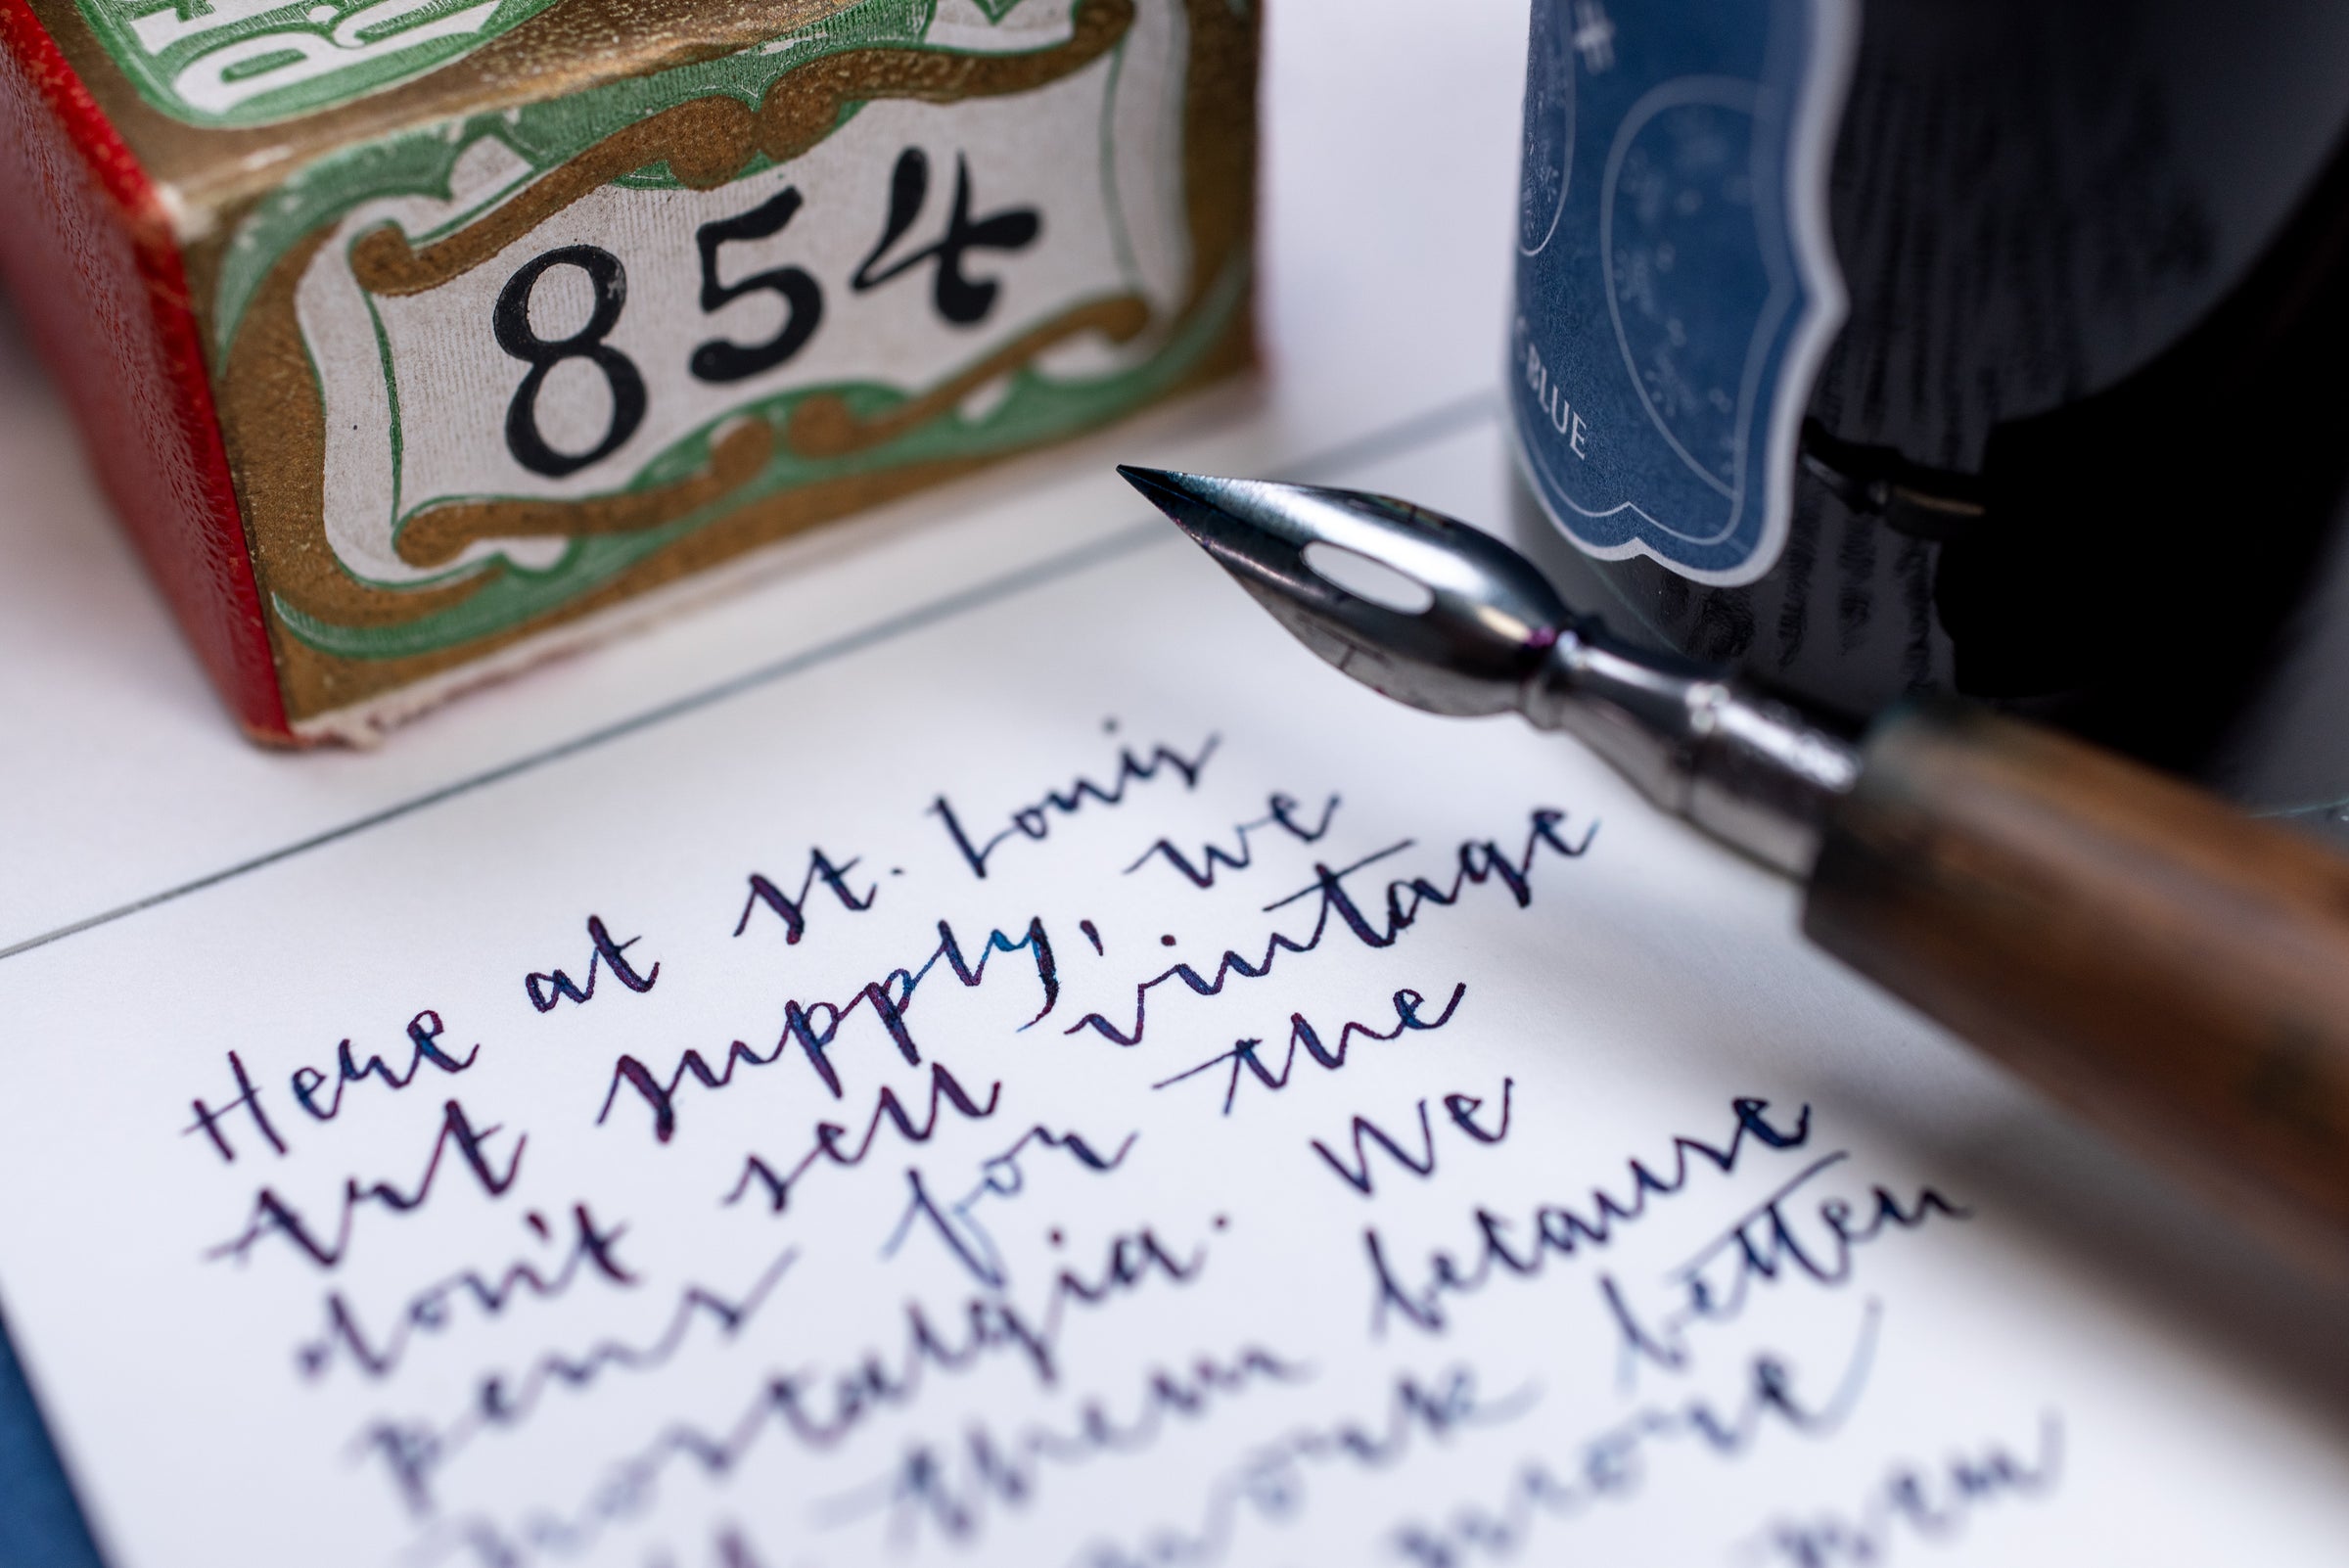 854
BLUE
Here at St. Louis
Art Supply, we
don't sell vintage
pens for the
nostalgia. We
sell them because
work better
more